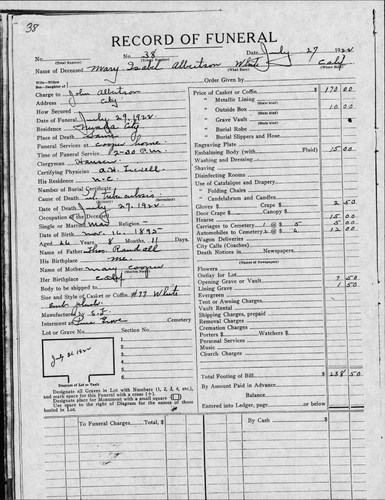 38
RECORD OF FUNERAL
No. 38 Date July 27 1922
(Total Number) (Yearly Number)
Name of Deceased Mary Isabel Albertson White Calif
(What Race) (Where Born)
Order Given by
Charge to John Albertson
Address City
How Secured
Date of Funeral July 29, 1922
Residence Nevada City
Place of Death Same
Funeral Services at Cooper home
Time of Funeral Service 2-30 P.M.
Clergyman Hansen
Certifying Physician
His Residence N.C.
Number of Burial Certificate
Cause of Death
Date of Death July 27, 1922
Occupation of the Deceased
Single or Married Mar Religion
Date of Birth Nov. 16, 1895
Aged 26 Years 8 Months 11 Days
Name of Father Thos. Randall
His Birthplace Me.
Name of Mother Mary Cooper
Her Birthplace Calif
Body to be shipped to
Size and Style of Casket or Coffin #77 White
Emb. plush
Manufactured by S.F.
Interment at Pine Grove Cemetery
Lot or Grave No. Section No.
July 31, 1922
Diagram of Lot or Vault
Designate all Graves in Lot with Numbers (1, 2, 3, 4, etc.), and mark space for this Funeral with a cross (+)
Designate place for Monument with a small square
Use space to the right of Diagram for the names of those buried in Lot.
Price of Casket or Coffin $ 170 00
" Metallic Lining
(State kind)
" Outside Box 10 00
(State kind)
" Grave Vault
(State kind)
" Burial Robe
(State kind)
" Burial Slippers and Hose
Engraving Plate
Embalming Body (with Fluid) 15 00
Washing and Dressing
Shaving
Disinfecting Rooms
Use of Catafalque and Drapery
" Folding Chairs
" Candelabrum and Candles
Gloves $ Crape $ 2 50
Door Crape $ Canopy $
Hearse 15 00
Carriages to Cemetery 1 @ $ 5 5 00
Automobiles to Cemetery @ $ 12 00
Wagon Deliveries
City Calls (Coaches)
Death Notices in Newspapers
(Names of Newspapers)
Flowers
Outlay for Lot
Opening Grave or Vault 7 50
Lining Grave 1 50
Evergreen
Tent or Awning Charges
Vault Rental
Shipping Charges, prepaid
Removal Charges
Cremation Charges
Porters $ Watchers $
Personal Services
Music
Church Charges
Total Footing of Bill $ 238 50
By Amount Paid in Advance
Balance
Entered into Ledger, page or below.
To Funeral Charges, Total
By Cash $